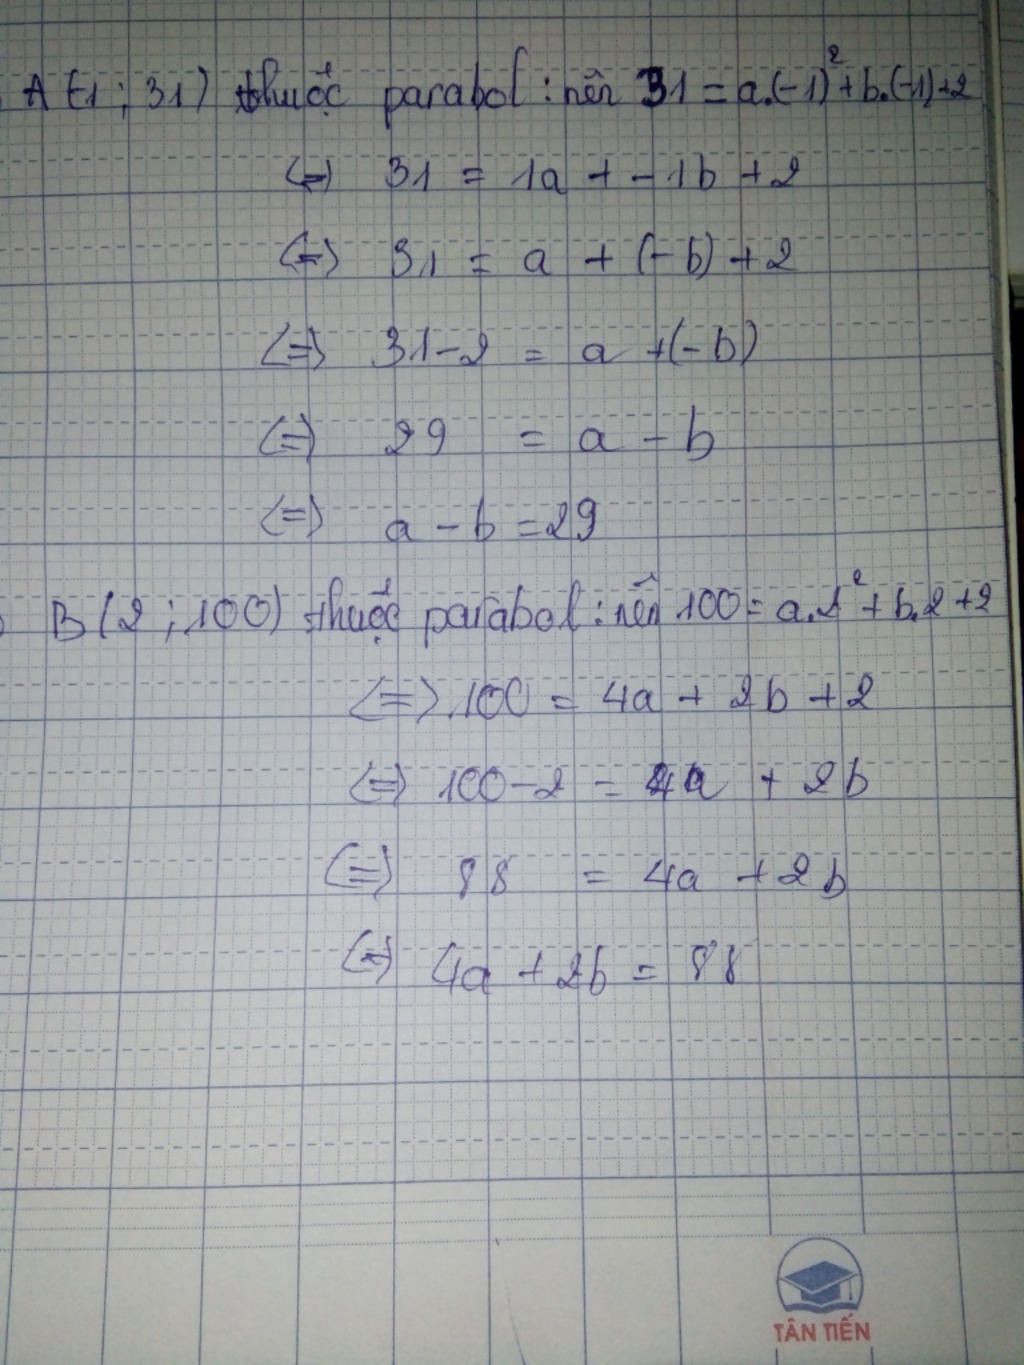 A (-1 ; 31) thuộc parabol : nên 31 = a.(-1)² + b.(-1) + 2
(=) 31 = 1a + - 1b + 2
(=) 31 = a + (- b) + 2
(=) 31 - 2 = a + (- b)
(=) 29 = a - b
(=) a - b = 29
B (2 ; 100) thuộc parabol : nên 100 = a.2² + b.2 + 2
(=) 100 = 4a + 2b + 2
(=) 100 - 2 = 4a + 2b
(=) 88 = 4a + 2b
(=) 4a + 2b = 88
TÂN TIẾN